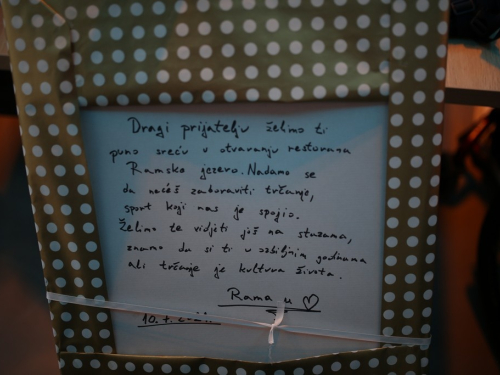 Dragi prijatelju želimo ti
puno sreću u otvaranju restorana
Ramsko jezero. Nadamo se
da nećeš zaboraviti trčanje,
sport koji nas je spojio.
Želimo te vidjeti još na stazama,
znamo da si ti u ozbiljnim godinama
ali trčanje je kultura života.
Rama u ♡
10.7.